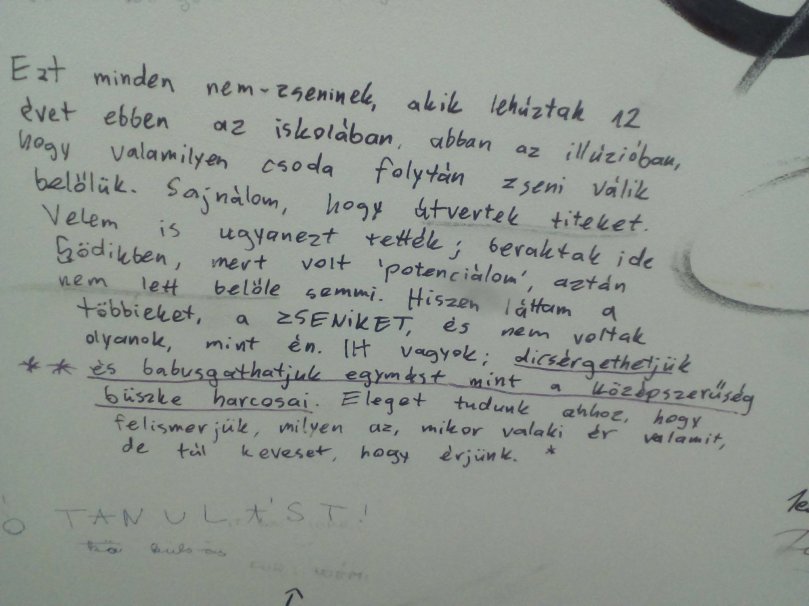 Ezt minden nem-zseninek, akik lehúztak 12
évet ebben az iskolában, abban az illúzióban,
hogy valamilyen csoda folytán zseni válik
belőlük. Sajnálom, hogy átvertek titeket.
Velem is ugyanezt tették; beraktak ide
5ödikben, mert volt 'potenciálom', aztán
nem lett belőle semmi. Hiszen láttam a
többieket, a ZSENIKET, és nem voltak
olyanok, mint én. Itt vagyok; dicsérgethetjük
** és babusgathatjuk egymást mint a középszerűség
büszke harcosai. Eleget tudunk ahhoz, hogy
felismerjük, milyen az, mikor valaki ér valamit,
de túl keveset, hogy érjünk. *
Ó TANULÁST!